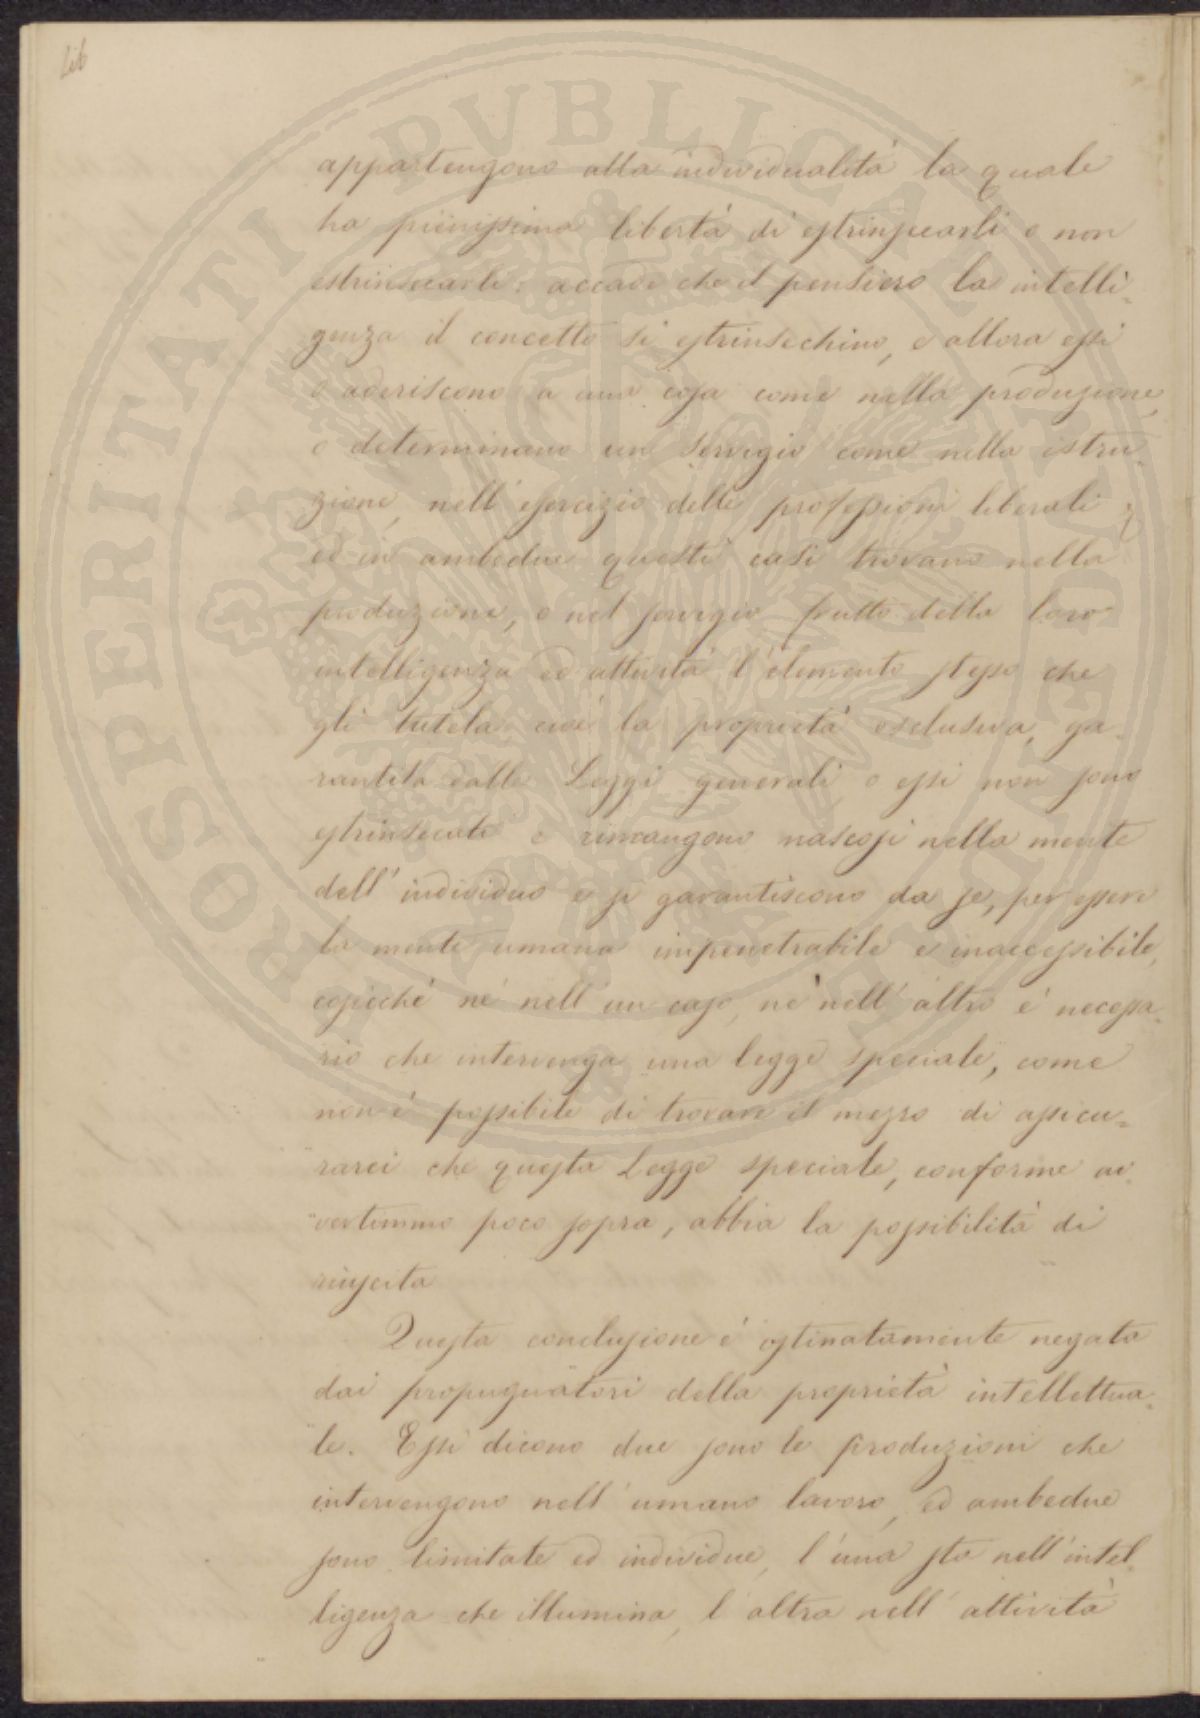 Lib
appartengono alla individualità la quale
ha pienissima libertà di estrinsecarli o non
estrinsecarli: accade che il pensiero la intelli=
genza il concetto si estrinsechino, e allora essi
o aderiscono a una cosa come nella produzione,
o determinano un servigio come nella istru=
zione, nell'esercizio delle professioni liberali,
ed in ambedue questi casi trovano nella
produzione, o nel servigio frutto della loro
intelligenza ed attività l'elemento stesso che
gli tutela cioè la proprietà esclusiva, ga=
rantita dalle Leggi generali o essi non sono
estrinsecati e rimangono nascosi nella mente
dell'individuo e si garantiscono da se, per essere
la mente umana impenetrabile e inaccessibile,
cosicchè nè nell'un caso, nè nell'altro è necessa=
rio che intervenga una legge speciale, come
non è possibile di trovare il mezzo di assicu=
rarci che questa Legge speciale, conforme av=
vertimmo poco sopra, abbia la possibilità di
riuscita
Questa conclusione è ostinatamente negata
dai propugnatori della proprietà intellettua=
le. Essi dicono due sono le produzioni che
intervengono nell'umano lavoro, ed ambedue
sono limitate ed individue, l'una sta nell'intel=
ligenza che illumina, l'altra nell'attività
PROSPERITATI PVBLICAE